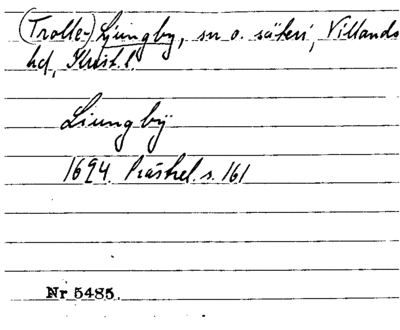 (Trolle-)Ljungby, sn o. säteri, Villands
hd, Krist.l.
Liungbÿ
1694. Prästrel. s. 161
Nr 5485.